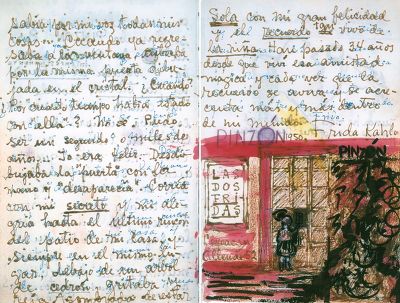 sabía con mi voz todas mis
cosas... Cuando ya regre-
saba a la ventana, entraba
por la misma puerta dibu-
jada en el cristal. ¿Cuándo?
¿Por cuanto tiempo había estado
con "ella"? No sé. Pudo
ser un segundo o miles de
años... Yo era feliz. Desdi-
bujaba la puerta con la
mano y "desaparecía". Corría
con mi secreto y mi ale-
gría hasta el último rincón
del patio de mi casa, y
siempre en el mismo lu-
gar, debajo de un arbol
de cedron, gritaba y
reía Asombrada de estar
Sola con mi gran felicidad
y el Recuerdo tan vivo de
la niña. Han pasado 34 años
desde que viví esa amistad
mágica y cada vez que la
recuerdo se aviva y se acre-
cienta más y más dentro
de mi mundo.
PINZÓN 1950. Frida Kahlo
PINZÓN
LAS
DOS
FRI
DAS